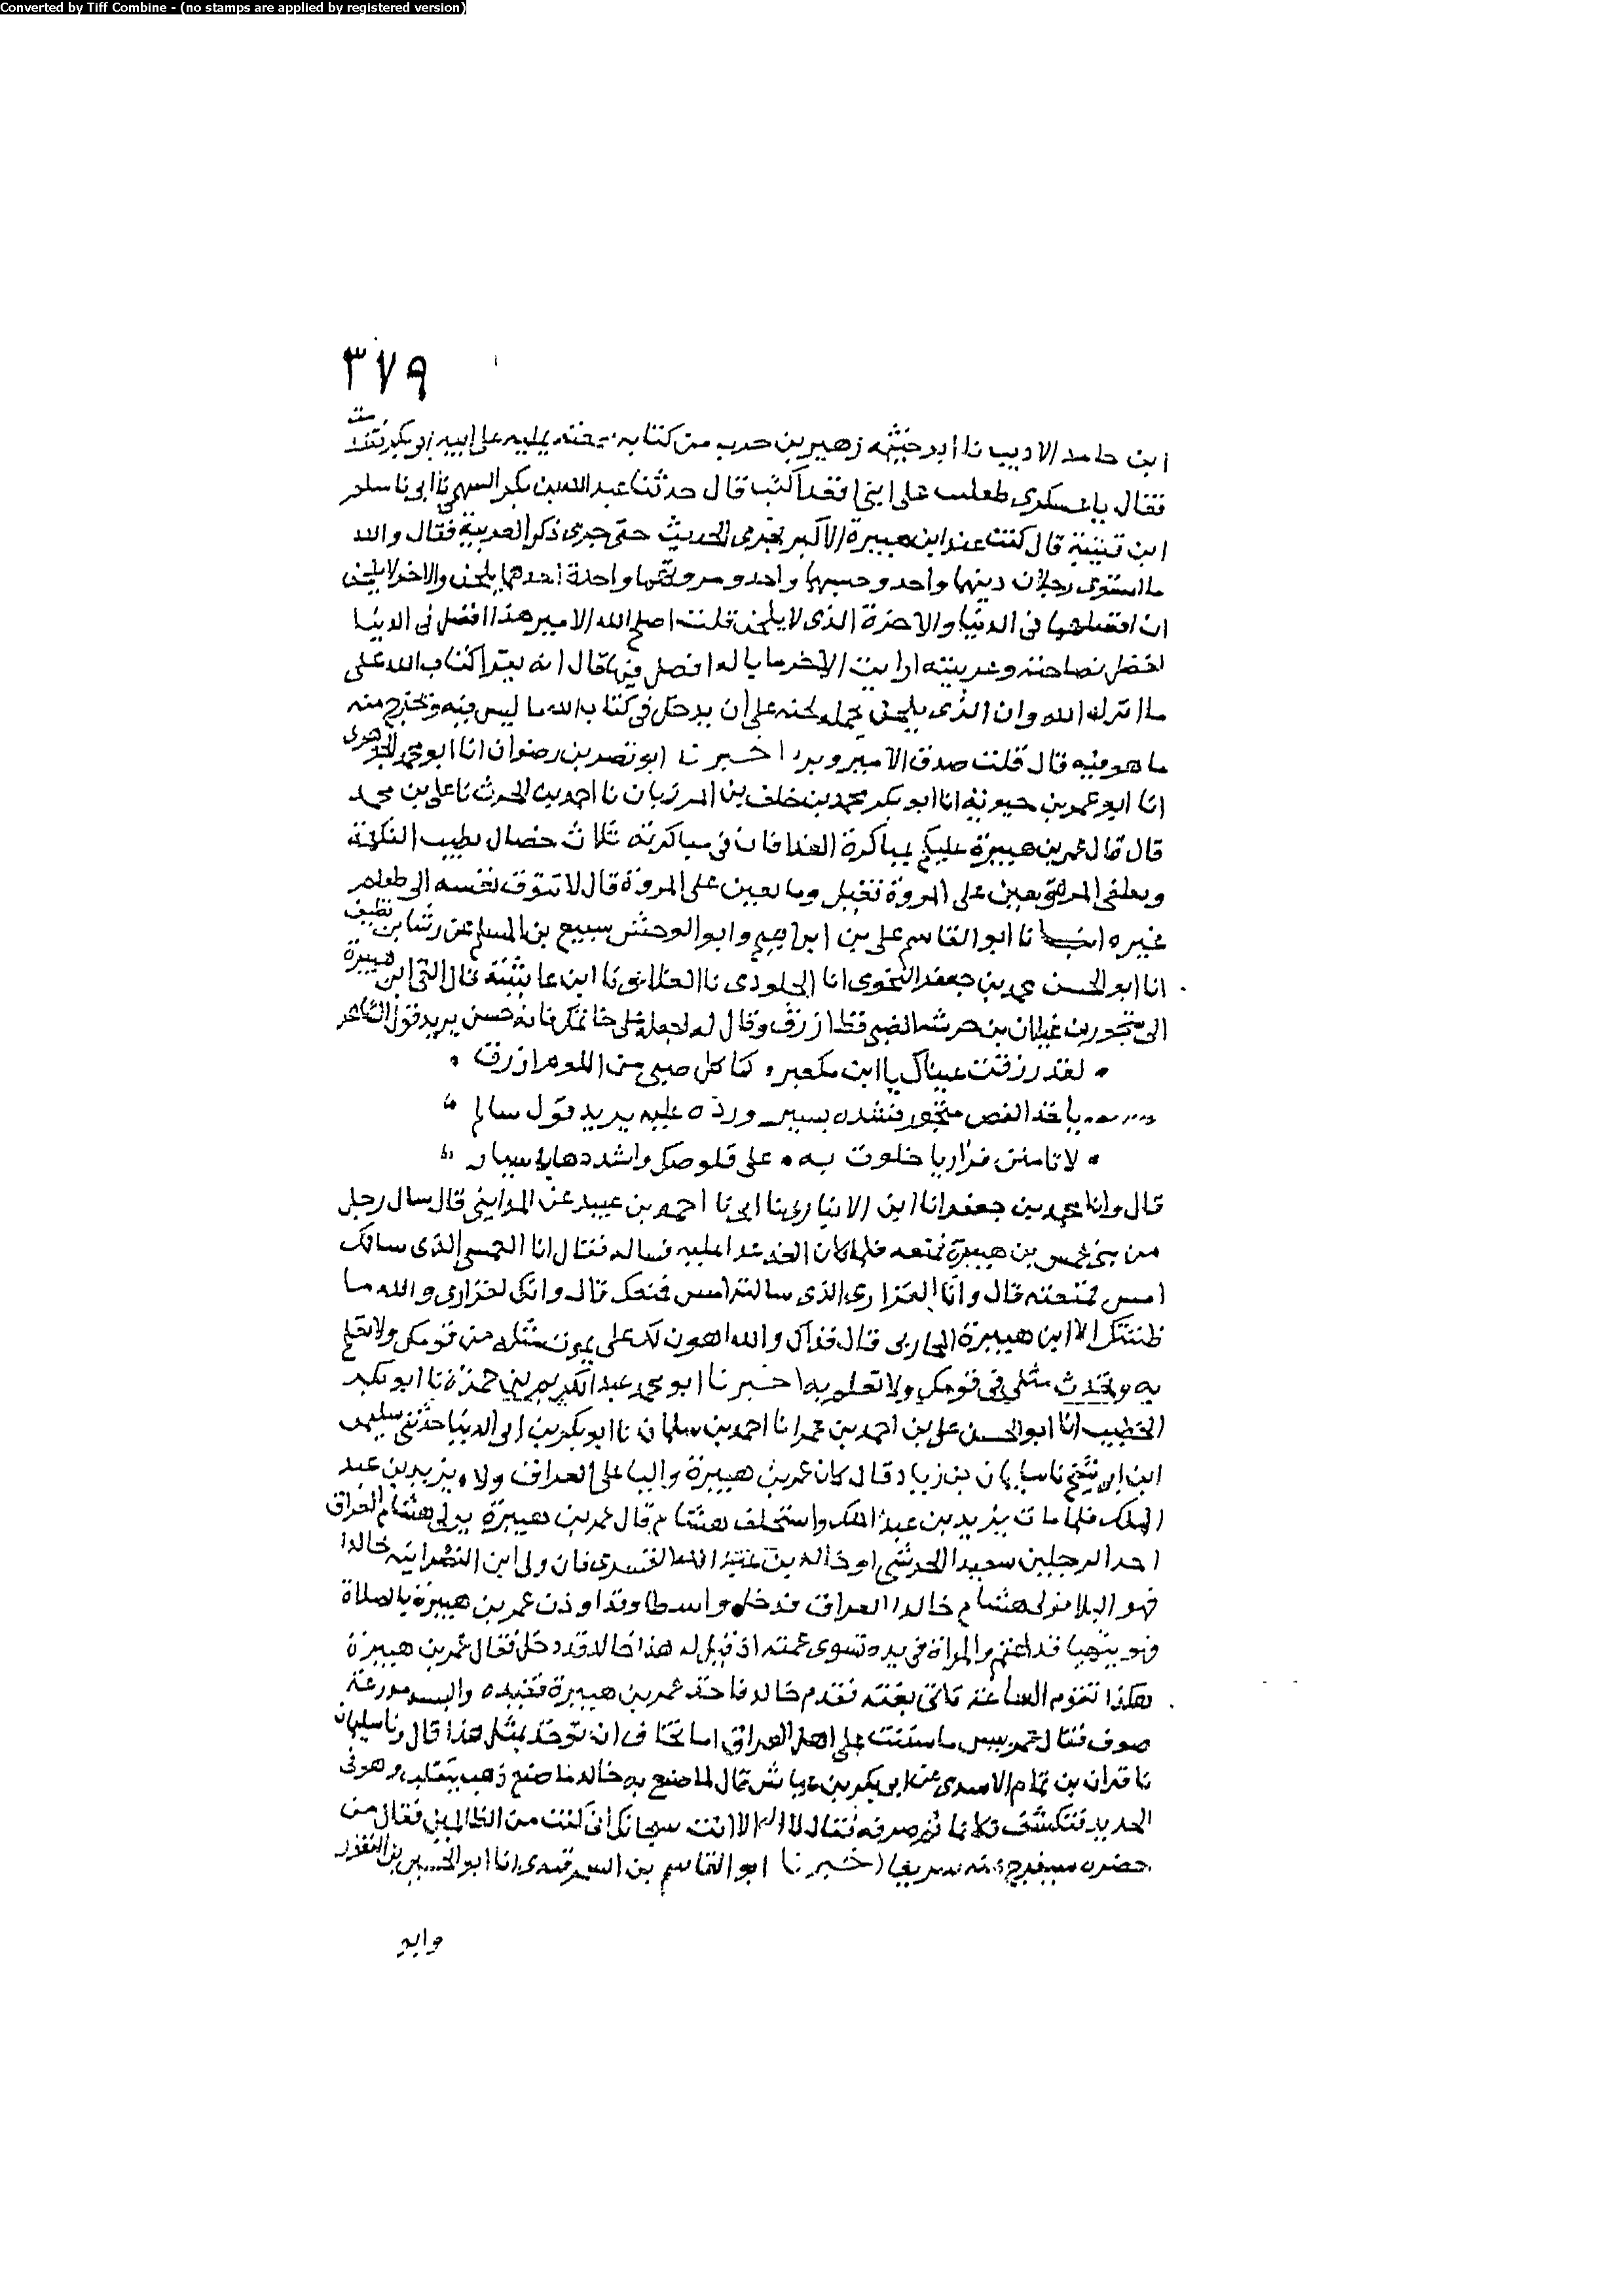 Converted by Tiff Combine - (no stamps are applied by registered version)
٣٧٩
ابن حامد الاديب نا ابو خيثمه زهير بن حرب من كتابه يمليه على ابنه ابو بكر
فقال يا عسكرى على ابنى اكتب قال حدثنا عبد الله بن بكر السهمى نا ابى نا سلم
ابن قتيبة قال كنت عند ابن هبيرة الاكبر نجرى الحديث حتى جرى ذكر العربية فقال والله
ما استوى رجلان دينهما واحد وحسبهما واحد ومروءتهما واحدة احدهما يلحن والاخر لا يلحن
ان افضلهما فى الدنيا والاخرة الذى لا يلحن قلت اصلح الله الامير هذا افضل فى الدنيا
لفضل فصاحته وعربيته ارايت الاخرة ما باله افضل فيها قال انه يقرا كتاب الله على
ما انزله الله وان الذى يلحن يحمله لحنه على ان يدخل فى كتاب الله ما ليس فيه ويخرج منه
ما هو فيه قال قلت صدق الامير وبر اخبرنا ابو نصر بن رضوان انا ابو محمد الجوهرى
انا ابو عمر بن حيويه انا ابو بكر محمد بن خلف بن المرزبان نا احمد بن الحرث نا على بن محمد
قال قال عمر بن هبيرة عليكم بمباكرة الغدا فان فى مباكرته ثلاث خصال يطيب النكهة
ويطفى المرة ويعين على المروة فقيل وما يعين على المروة قال لا تتوق نفسه الى طعام
غيره نا ابو القاسم على بن ابراهيم وابو الوحش سبيع بن المسلم عن رشا بن نظيف
انا ابو الحسن محمد بن جعفر النحوى انا الجلودى نا الغلابى نا ابن عايشة قال القى ابن هبيرة
الى منجور بن غيلان بن خرشه الضبى فصا ازرق وقال له اجعله على خاتمك فانه حسن يريد قول الشاعر
لقد زرقت عيناك يا ابن مكعبر كما كل ضبى من اللوم ازرق
ياخذ الفص منجور فشده بسير ورده عليه يريد قول سالم
لا تامنن فزاريا خلوت به على قلوصك واشددها باسيار
قال وانا محمد بن جعفر انا ابن الانبارى نا ابى نا احمد بن عبيد عن المداينى قال سال رجل
من بنى بن هبيرة فمنعه فلما كان الغد غدا عليه فساله فقال انا الذى سالك
امس فمنعته قال وانا الفزارى الذى سالته امس فمنعك قال وانك لفزارى والله ما
ظننتك الا ابن هبيرة المحاربى قال فذاك والله اهون لك على يموت مثله من قومك ولا تعلم
به ويحدث مثلى فى قومك ولا تعلم به اخبرنا ابو محمد عبد الكريم بن حمزة نا ابو بكر
الخطيب انا ابو الحسن على بن احمد بن عمر انا احمد بن سلمان نا ابو بكر بن ابى الدنيا حدثنى سليمن
ابن ابى شيخ نا سليمان بن زياد قال كان عمر بن هبيرة واليا على العراق ولاه يزيد بن عبد
الملك فلما مات يزيد بن عبد الملك واستخلف هشام قال عمر بن هبيرة يولى هشام العراق
احد الرجلين سعيدا الحرشى او خالد بن عبد الله القسرى فان ولى ابن النصرانيه خالدا
فهو البلا فولى هشام خالدا العراق فدخل واسطا وقد اوذن عمر بن هبيرة بالصلاة
فهو يتهيا قد اعتم والمراة فى يده تسوى عمته اذ قيل له هذا خالد قد دخل فقال عمر بن هبيرة
هكذا تقوم الساعة تاتى بغته فقدم خالد فاخذ عمر بن هبيرة فقيده والبسه مدرعة
صوف فقال عمر بيس ما سننت على اهل العراق اما تخاف ان توخذ بمثل هذا قال ونا سليمان
نا قران بن تمام الاسدى عن ابى بكر بن عياش قال لما صنع به خالد ما صنع ذهب يتقلب وهو فى
الحديد فتكشف فقال لا اله الا انت سبحانك انى كنت من الظالمين فقال من
حضره سيفرج عنه سريعا اخبرنا ابو القاسم بن السمرقندى انا ابو الحسين بن النقور
وابو